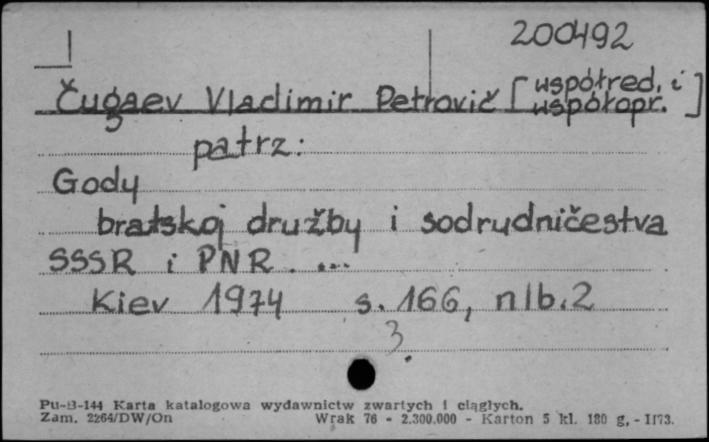 200492
Čugaev Vladimir Petrovič [uspółred. i uspółopr.]
patrz:
Gody
bratskoj družby i sodrudničestva
SSSR i PNR. ...
Kiev 1974 s. 166, nlb. 2
3.
Pu-B-144 Karta katalogowa wydawnictw zwartych i ciągłych.
Zam. 2264/DW/On Wrak 76 - 2.300.000 - Karton 5 kl. 180 g, - II73.